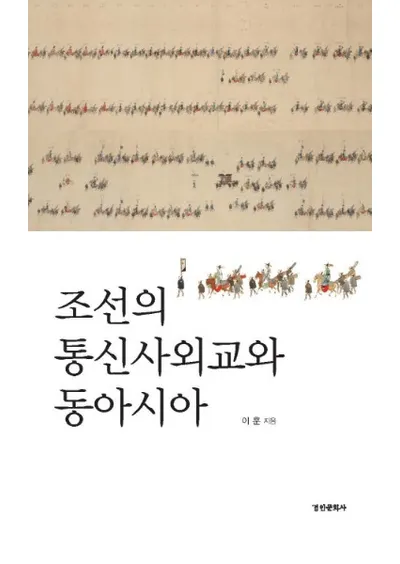 조선의
통신사외교와
동아시아
이 훈 지음
경인문화사